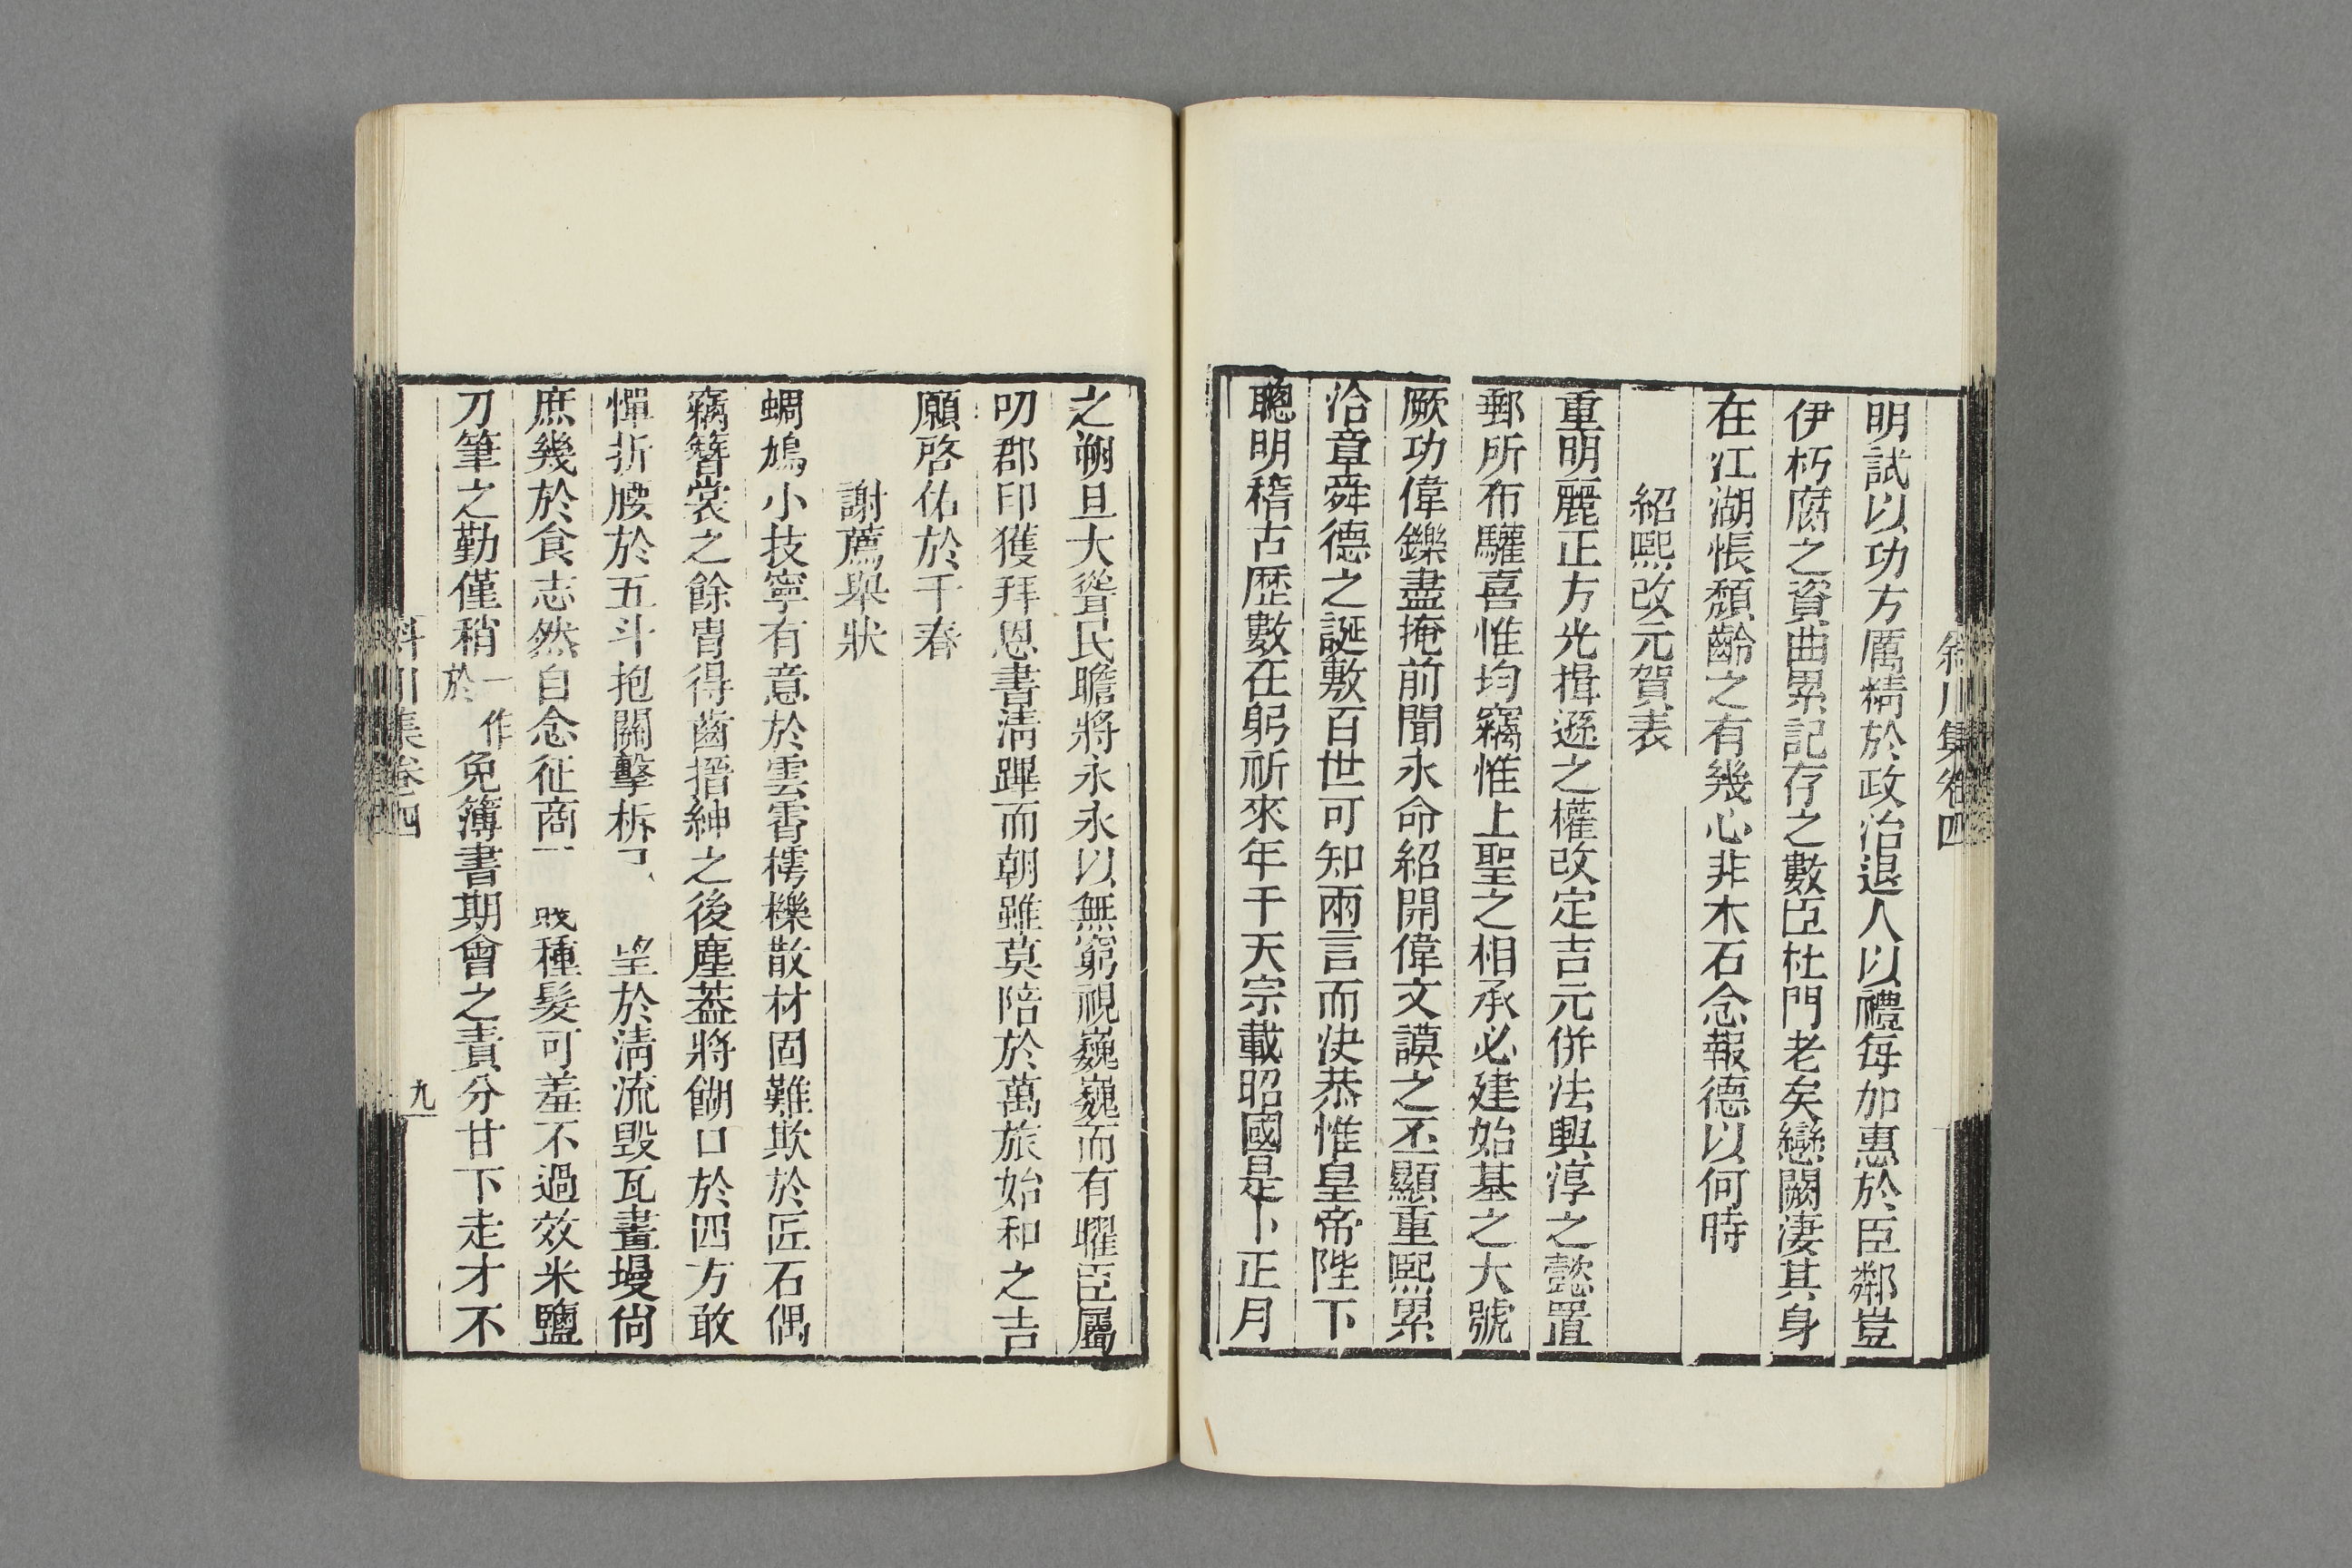 明試以功方厲精於政治退人以禮每加惠於臣鄰豈
伊朽腐之資曲累記存之數臣杜門老矣戀闕淒其身
在江湖悵頹齡之有幾心非木石念報德以何時
紹熙改元賀表
重明麗正方光揖遜之權改定吉元併法興淳之懿置
郵所布驩喜惟均竊惟上聖之相承必建始基之大號
厥功偉鑠盡掩前聞永命紹開偉文謨之丕顯重熙累
洽章舜德之誕敷百世可知兩言而決恭惟皇帝陛下
聰明稽古歷數在躬祈來年于天宗載昭國是卜正月
之朔旦大聳民瞻將永永以無窮視巍巍而有曜臣屬
叨郡印獲拜恩書淸蹕而朝雖莫陪於萬旅始和之吉
願啓佑於千春
謝薦舉狀
蜩鳩小技寧有意於雲霄樗櫟散材固難欺於匠石偶
竊簪裳之餘冑得齒搢紳之後塵蓋將餬口於四方敢
憚折腰於五斗抱關擊柝望於淸流毀瓦畫墁尙
庶幾於食志然自念征商賤種髮可羞不過效米鹽
刀筆之勤僅稍一作於免簿書期會之責分甘下走才不
川集卷四
九
川集卷四